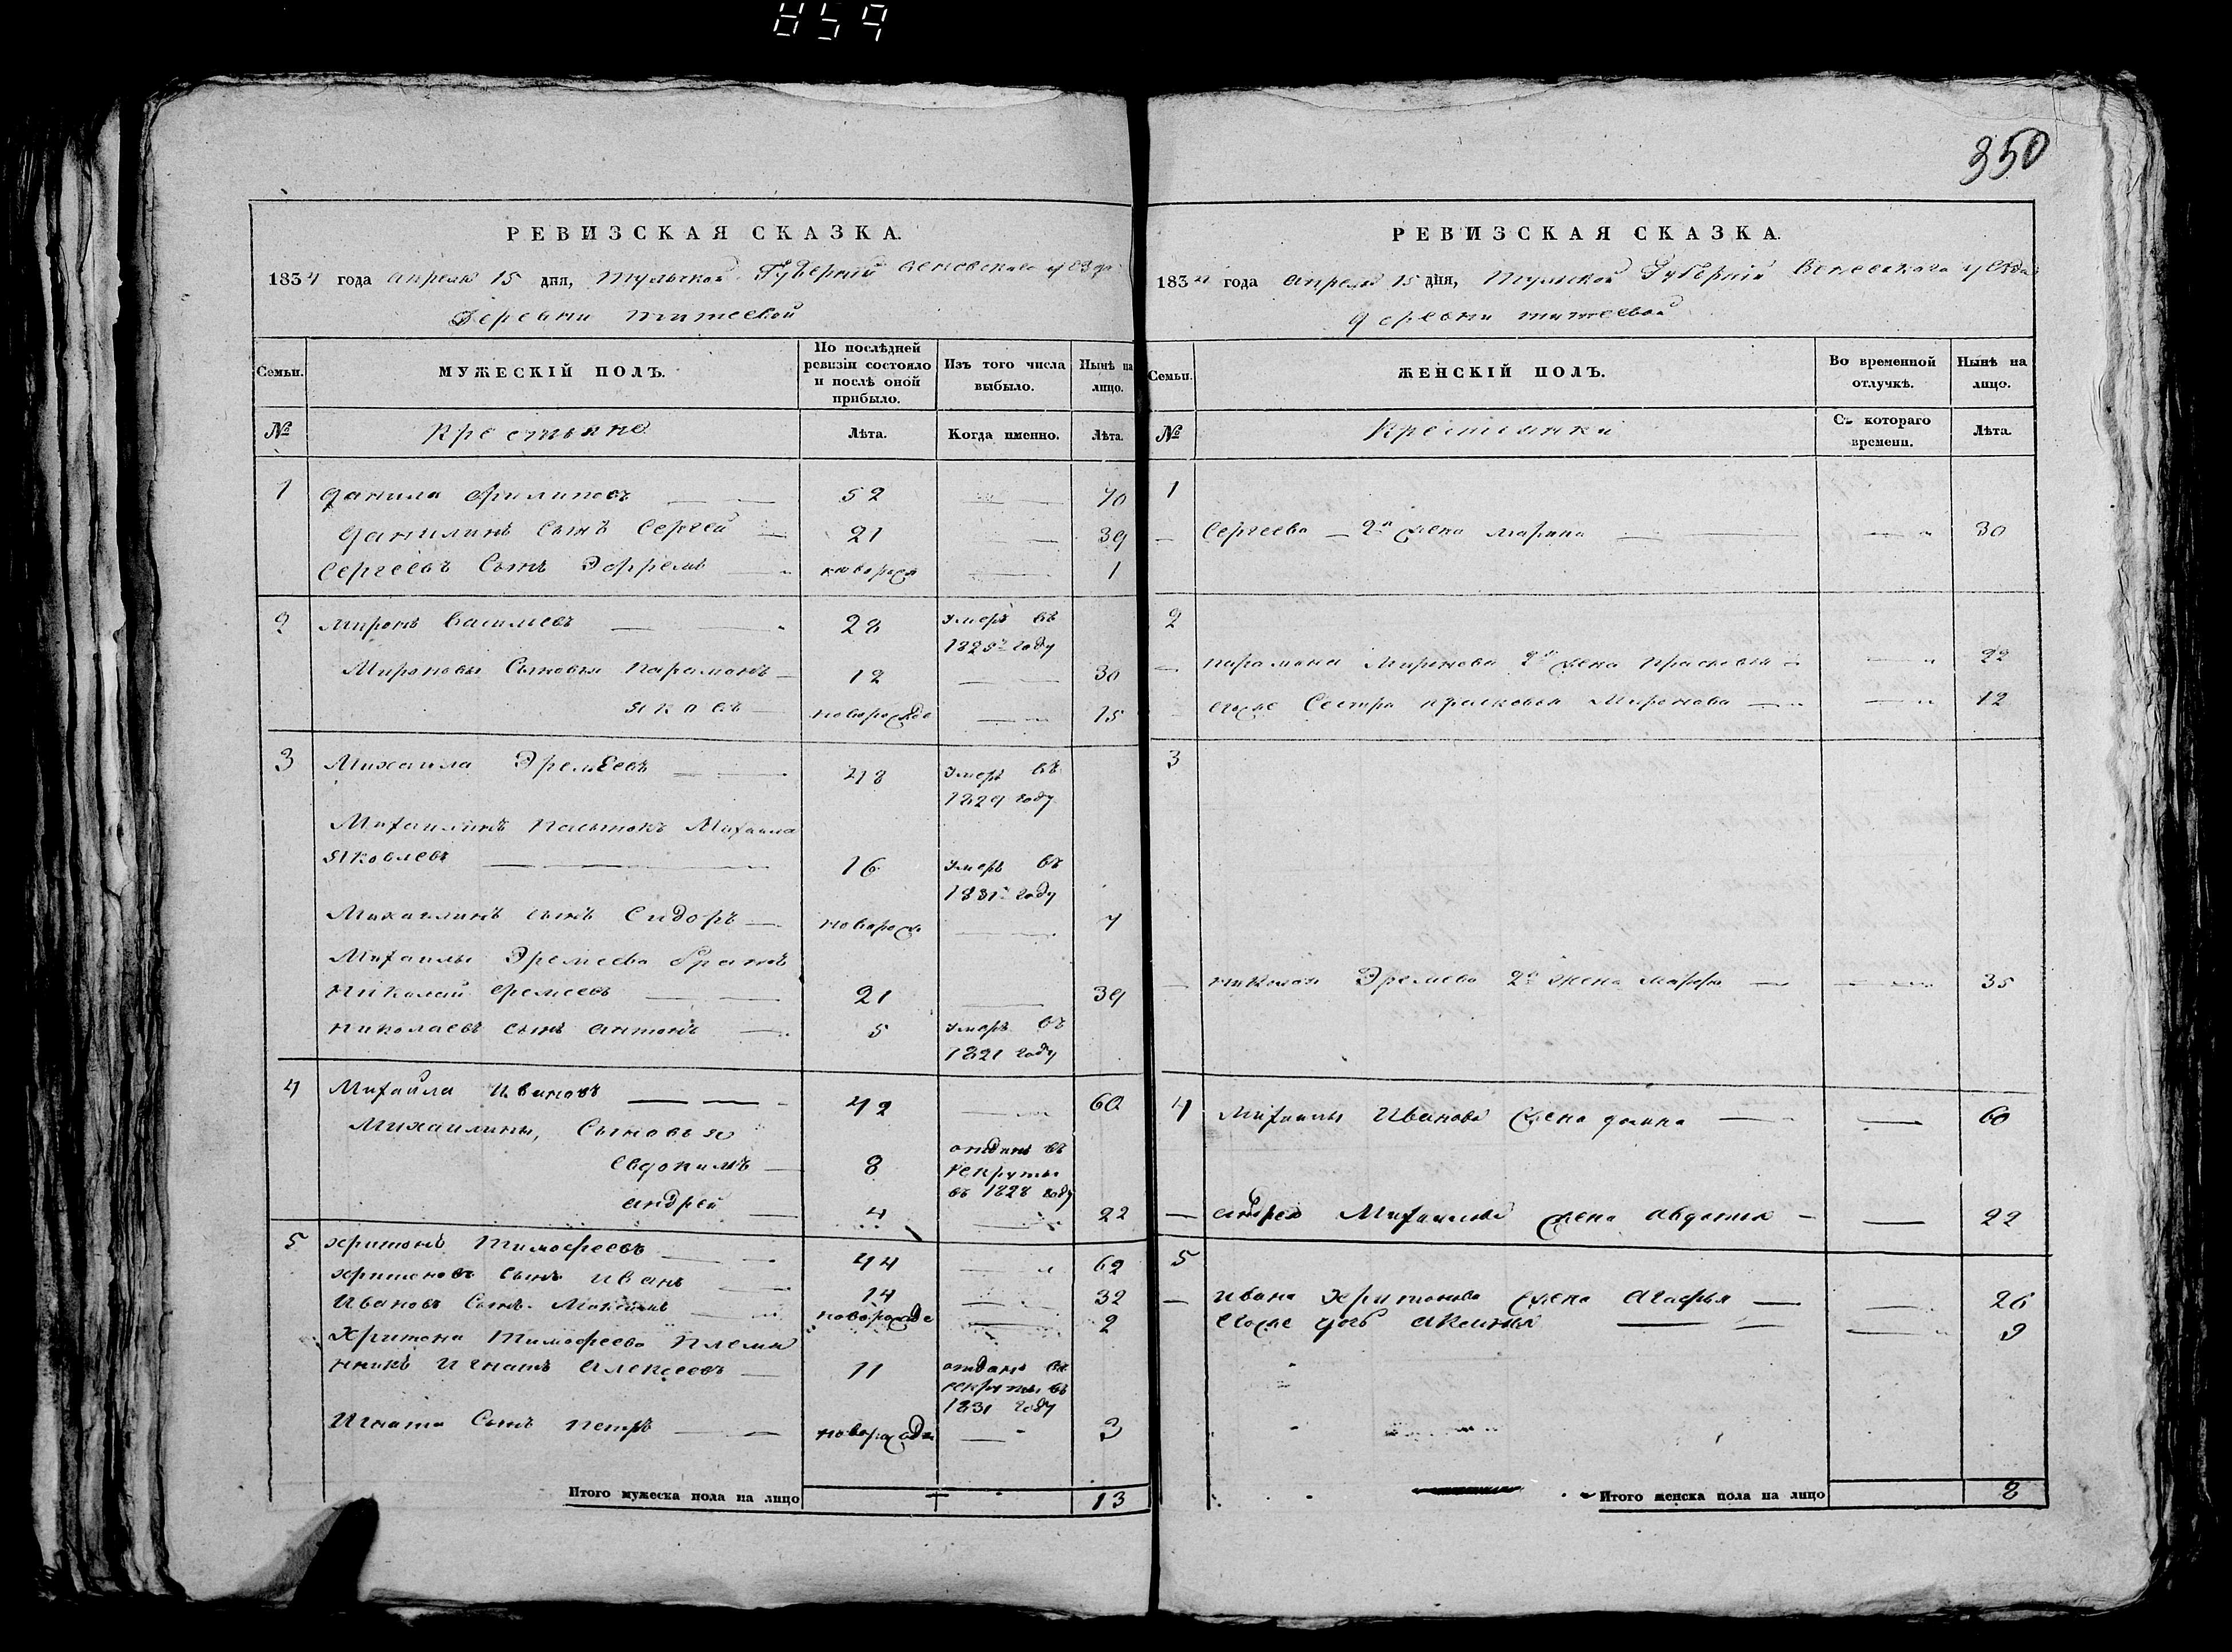 859
350
РЕВИЗСКАЯ СКАЗКА.
1834 года апреля 15 дня, Тульской Губернии Веневскаго уезда
Деревни Титеевой
Семьи. МУЖЕСКІЙ ПОЛЪ. По послѣдней ревизіи состояло и послѣ оной прибыло. Изъ того числа выбыло. Нынѣ на лицо.
№ Крестьяне Лѣта. Когда именно. Лѣта.
1 Данила Филиповъ 52 70
Данилинъ сынъ Сергей 21 39
Сергеевъ сынъ Эфремъ новорож 1
2 Миронъ Васильевъ 28 умеръ въ
1825 году
Мироновы сыновья Парамонъ 12 30
Яковъ новорожде 15
3 Михаила Эремеевъ 48 умеръ въ
1829 году
Михаилинъ Михаила
Яковлевъ 16 умеръ въ
1831 году
Михаилинъ сынъ Сидоръ новорож 7
Михаилы Эремеева братъ
Николай Еремеевъ 21 39
Николаевъ сынъ Антонъ 5 умеръ въ
1821 году
4 Михайла Ивановъ 42 60
Михаилины, Сыновья
Евдокимъ 8 отданъ въ
рекруты
въ 1828 году
Андрей 4 22
5 Харитонъ Тимофеевъ 44 62
Харитоновъ сынъ Иванъ 14 32
Ивановъ сынъ Максимъ новорожде 2
Харитона Тимофеева племя
нникъ Игнатъ Алексеевъ 11 отданъ въ
рекруты въ
1831 году
Игната сынъ Петръ новорожде 3
Итого мужеска пола на лицо 13
РЕВИЗСКАЯ СКАЗКА.
1834 года апреля 15 дня, Тульской Губернии Веневскаго уезда
деревни Титеевой
Семьи. ЖЕНСКІЙ ПОЛЪ. Во временной отлучкѣ. Нынѣ на лицо.
№ Крестьянки Съ котораго времени. Лѣта.
1
Сергеева 2я жена Марина 30
2
Парамона Миронова 2я жена Прасковья 22
Егоже сестра Прасковья Миронова 12
3
Николая Эремеева 2я жена Марфа 35
4 Михаилы Иванова жена 60
Андрея Михаилова жена Авдотья 22
5
Ивана Харитонова жена Агафья 26
Егоже дочь Акилина 9
Итого женска пола на лицо 8